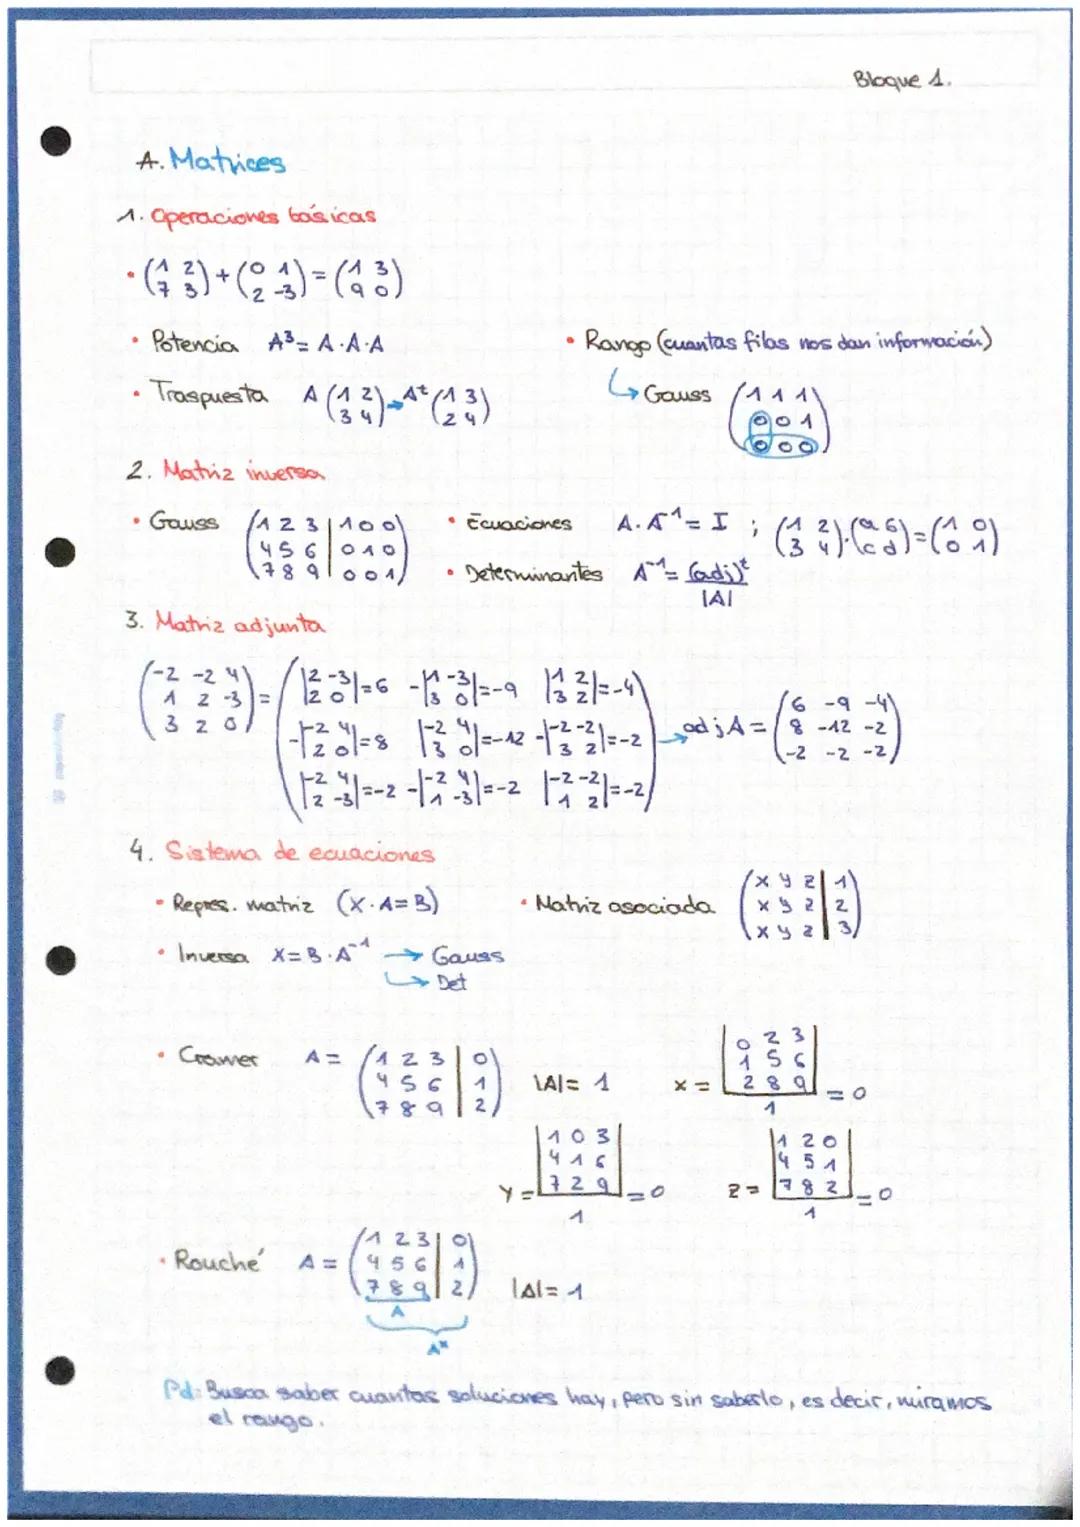 Bloque 1.
A. Matrices
1. Operaciones básicas
• (1 2 / 7 3) + (0 1 / 2 -3) = (1 3 / 9 0)
• Potencia A³ = A·A·A
• Rango (cuantas filas nos dan información)
• Traspuesta A (1 2 / 3 4) → Aᵗ (1 3 / 2 4)
↳ Gauss (1 1 1 / 0 0 1 / 0 0 0)
2. Matriz inversa
• Gauss (1 2 3 | 1 0 0 / 4 5 6 | 0 1 0 / 7 8 9 | 0 0 1)
• Ecuaciones A·A⁻¹ = I ; (1 2 / 3 4)·(a b / c d) = (1 0 / 0 1)
• Determinantes A⁻¹ = (adj)ᵗ / |A|
3. Matriz adjunta
(-2 -2 4 / 1 2 -3 / 3 2 0) =
|2 -3 / 2 0| = 6 -|1 -3 / 3 0| = -9 |1 2 / 3 2| = -4
-|-2 4 / 2 0| = 8 |-2 4 / 3 0| = -12 -|-2 -2 / 3 2| = -2
|-2 4 / 2 -3| = -2 -|-2 4 / 1 -3| = -2 |-2 -2 / 1 2| = -2
→ adj A = (6 -9 -4 / 8 -12 -2 / -2 -2 -2)
4. Sistema de ecuaciones
• Repres. matriz (X·A=B)
• Matriz asociada (x y z | 1 / x y z | 2 / x y z | 3)
• Inversa X = B·A⁻¹ → Gauss
↳ Det
• Cramer A = (1 2 3 | 0 / 4 5 6 | 1 / 7 8 9 | 2) |A| = 1
x = |0 2 3 / 1 5 6 / 2 8 9| / 1 = 0
Y = |1 0 3 / 4 1 6 / 7 2 9| / 1 = 0
z = |1 2 0 / 4 5 1 / 7 8 2| / 1 = 0
• Rouché A = (1 2 3 | 0 / 4 5 6 | 1 / 7 8 9 | 2) |A| = 1
A
A*
Pd: Busca saber cuantas soluciones hay, pero sin saberlo, es decir, miramos
el rango.